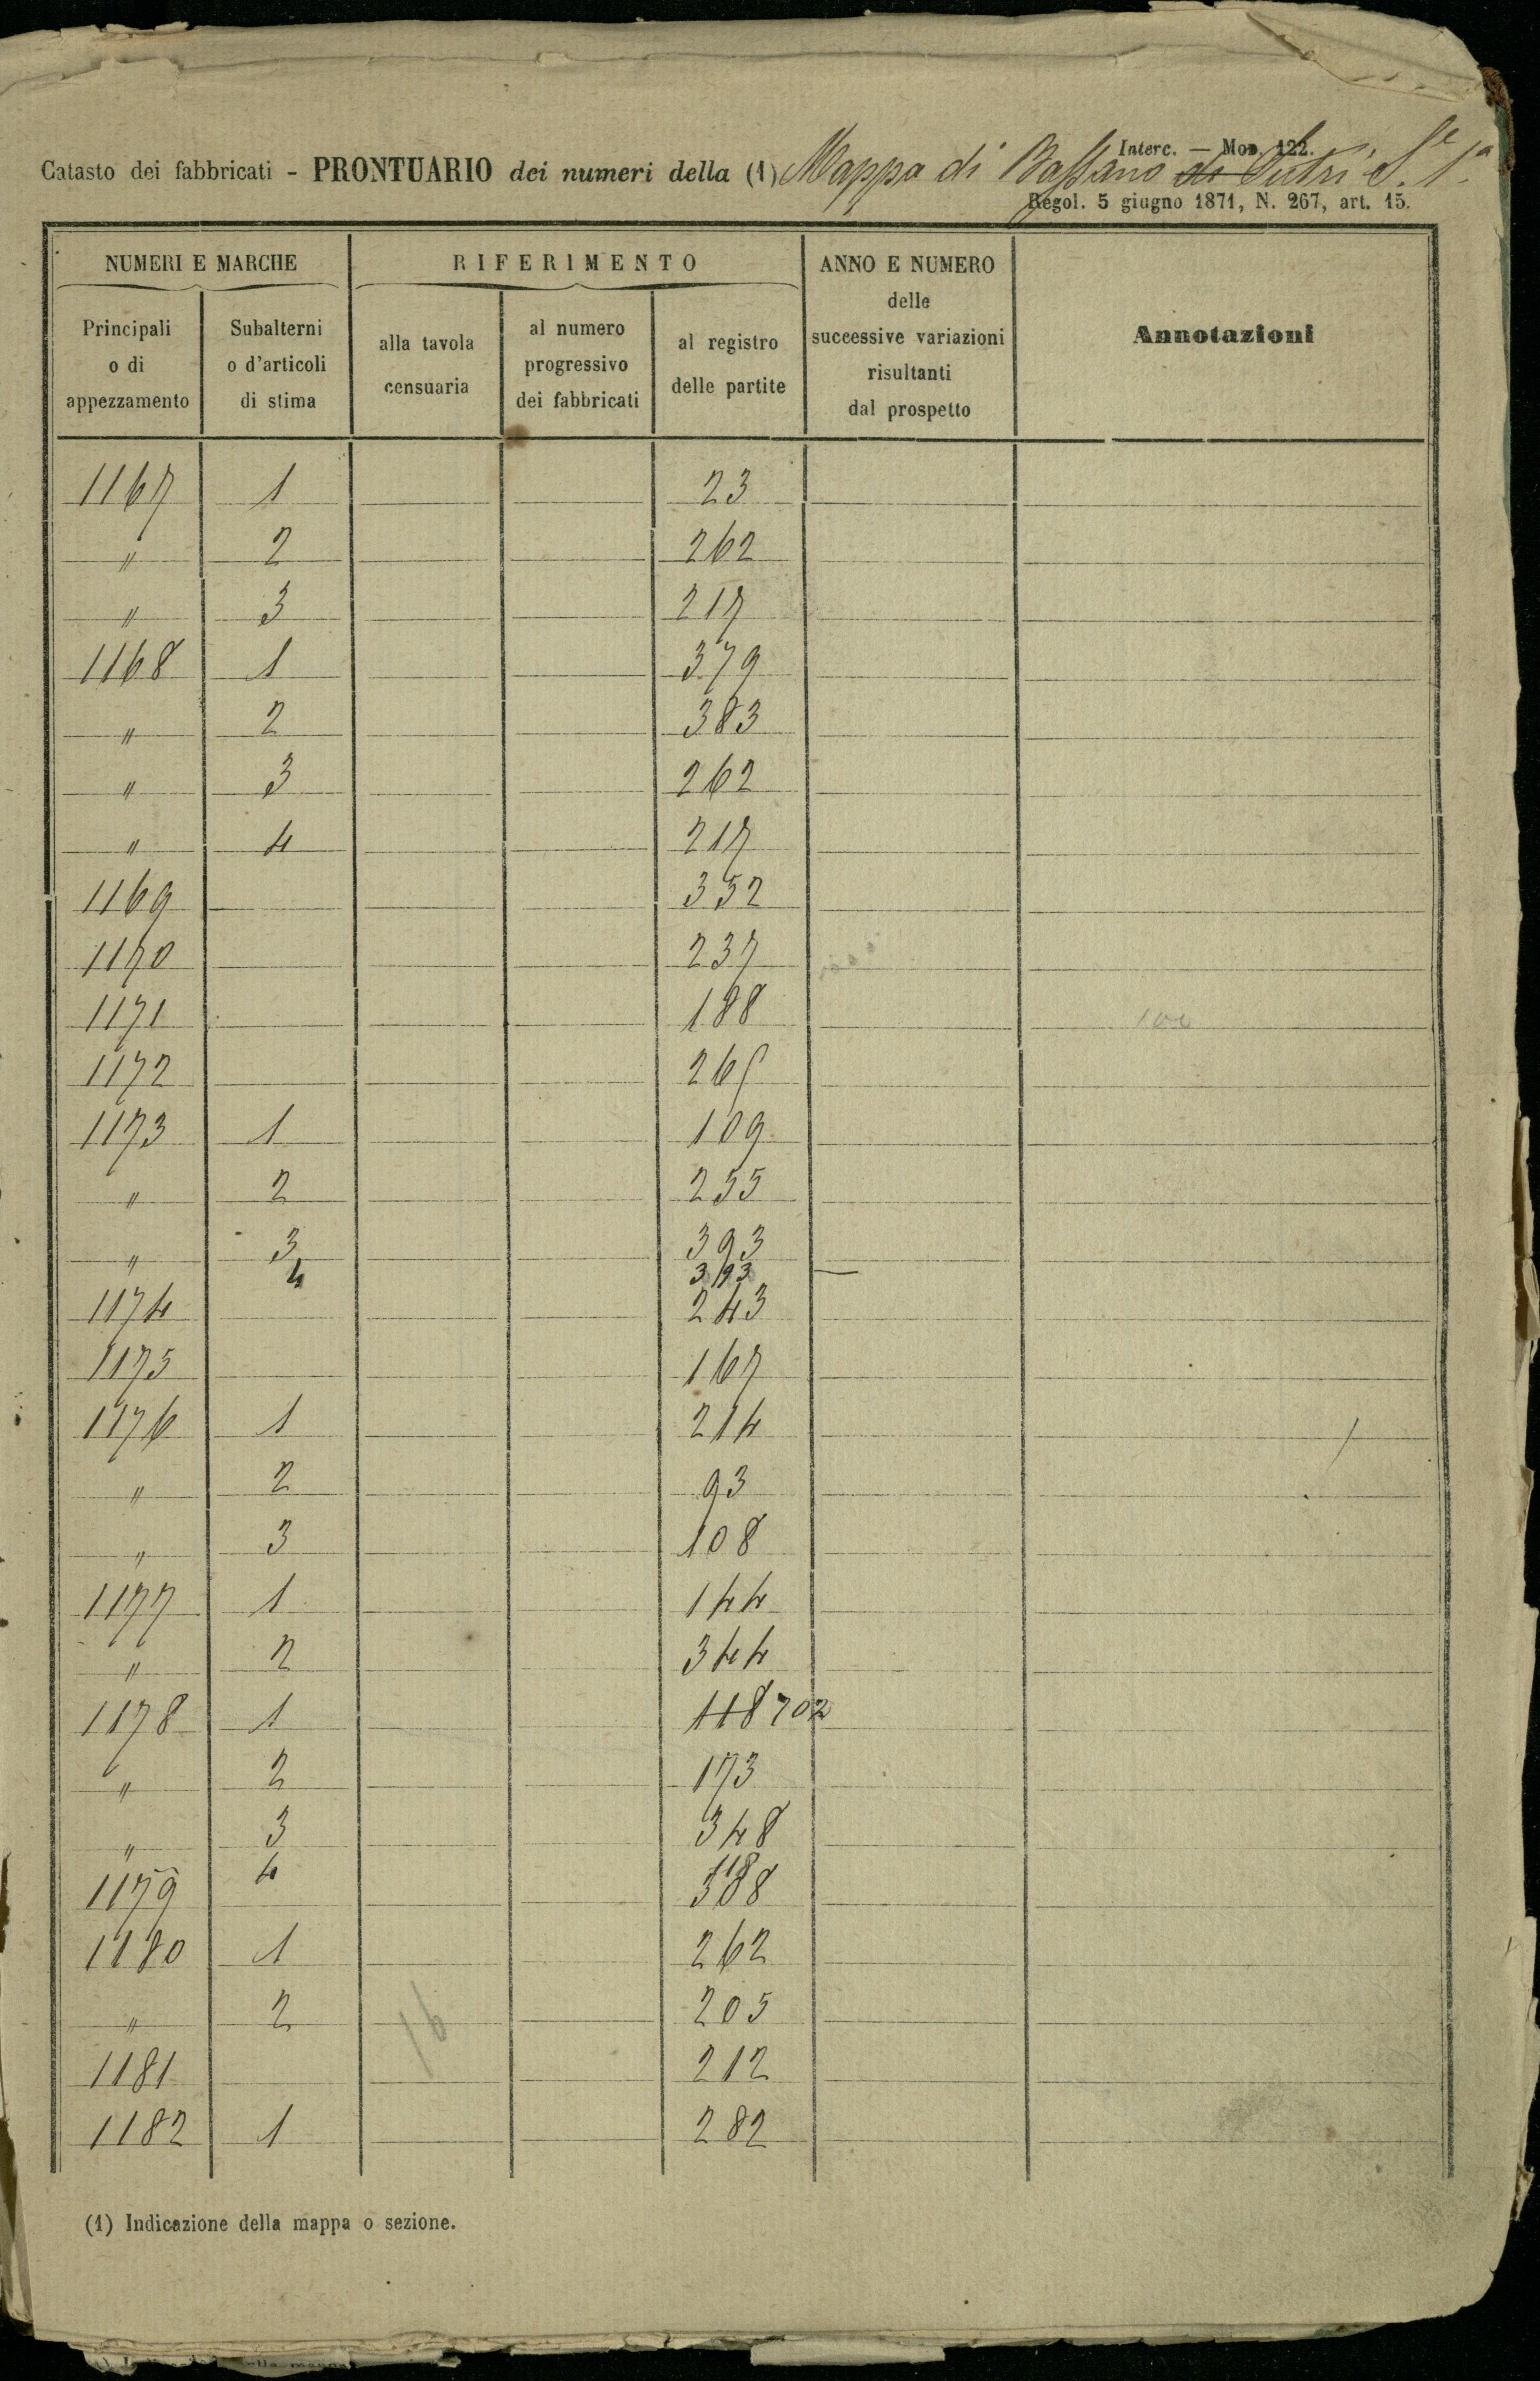 Interc. — Mod. 122.
Catasto dei fabbricati - PRONTUARIO dei numeri della (1) Mappa di Bassano di Sutri S.e 1a
Regol. 5 giugno 1871, N. 267, art. 15.
NUMERI E MARCHE RIFERIMENTO ANNO E NUMERO delle successive variazioni risultanti dal prospetto Annotazioni
Principali o di appezzamento Subalterni o d'articoli di stima alla tavola censuaria al numero progressivo dei fabbricati al registro delle partite
1167 1 23
" 2 262
" 3 217
1168 1 379
" 2 383
" 3 262
" 4 217
1169 352
1170 237
1171 188 100
1172 265
1173 1 109
" 2 255
" 3 393
4 393 —
1174 243
1175 167
1176 1 214
" 2 93
" 3 108
1177 1 144
" 2 344
1178 1 118 702
" 2 173
" 3 348
4 118
1179 388
1180 1 262
" 2 16 205
1181 212
1182 1 282
(1) Indicazione della mappa o sezione.